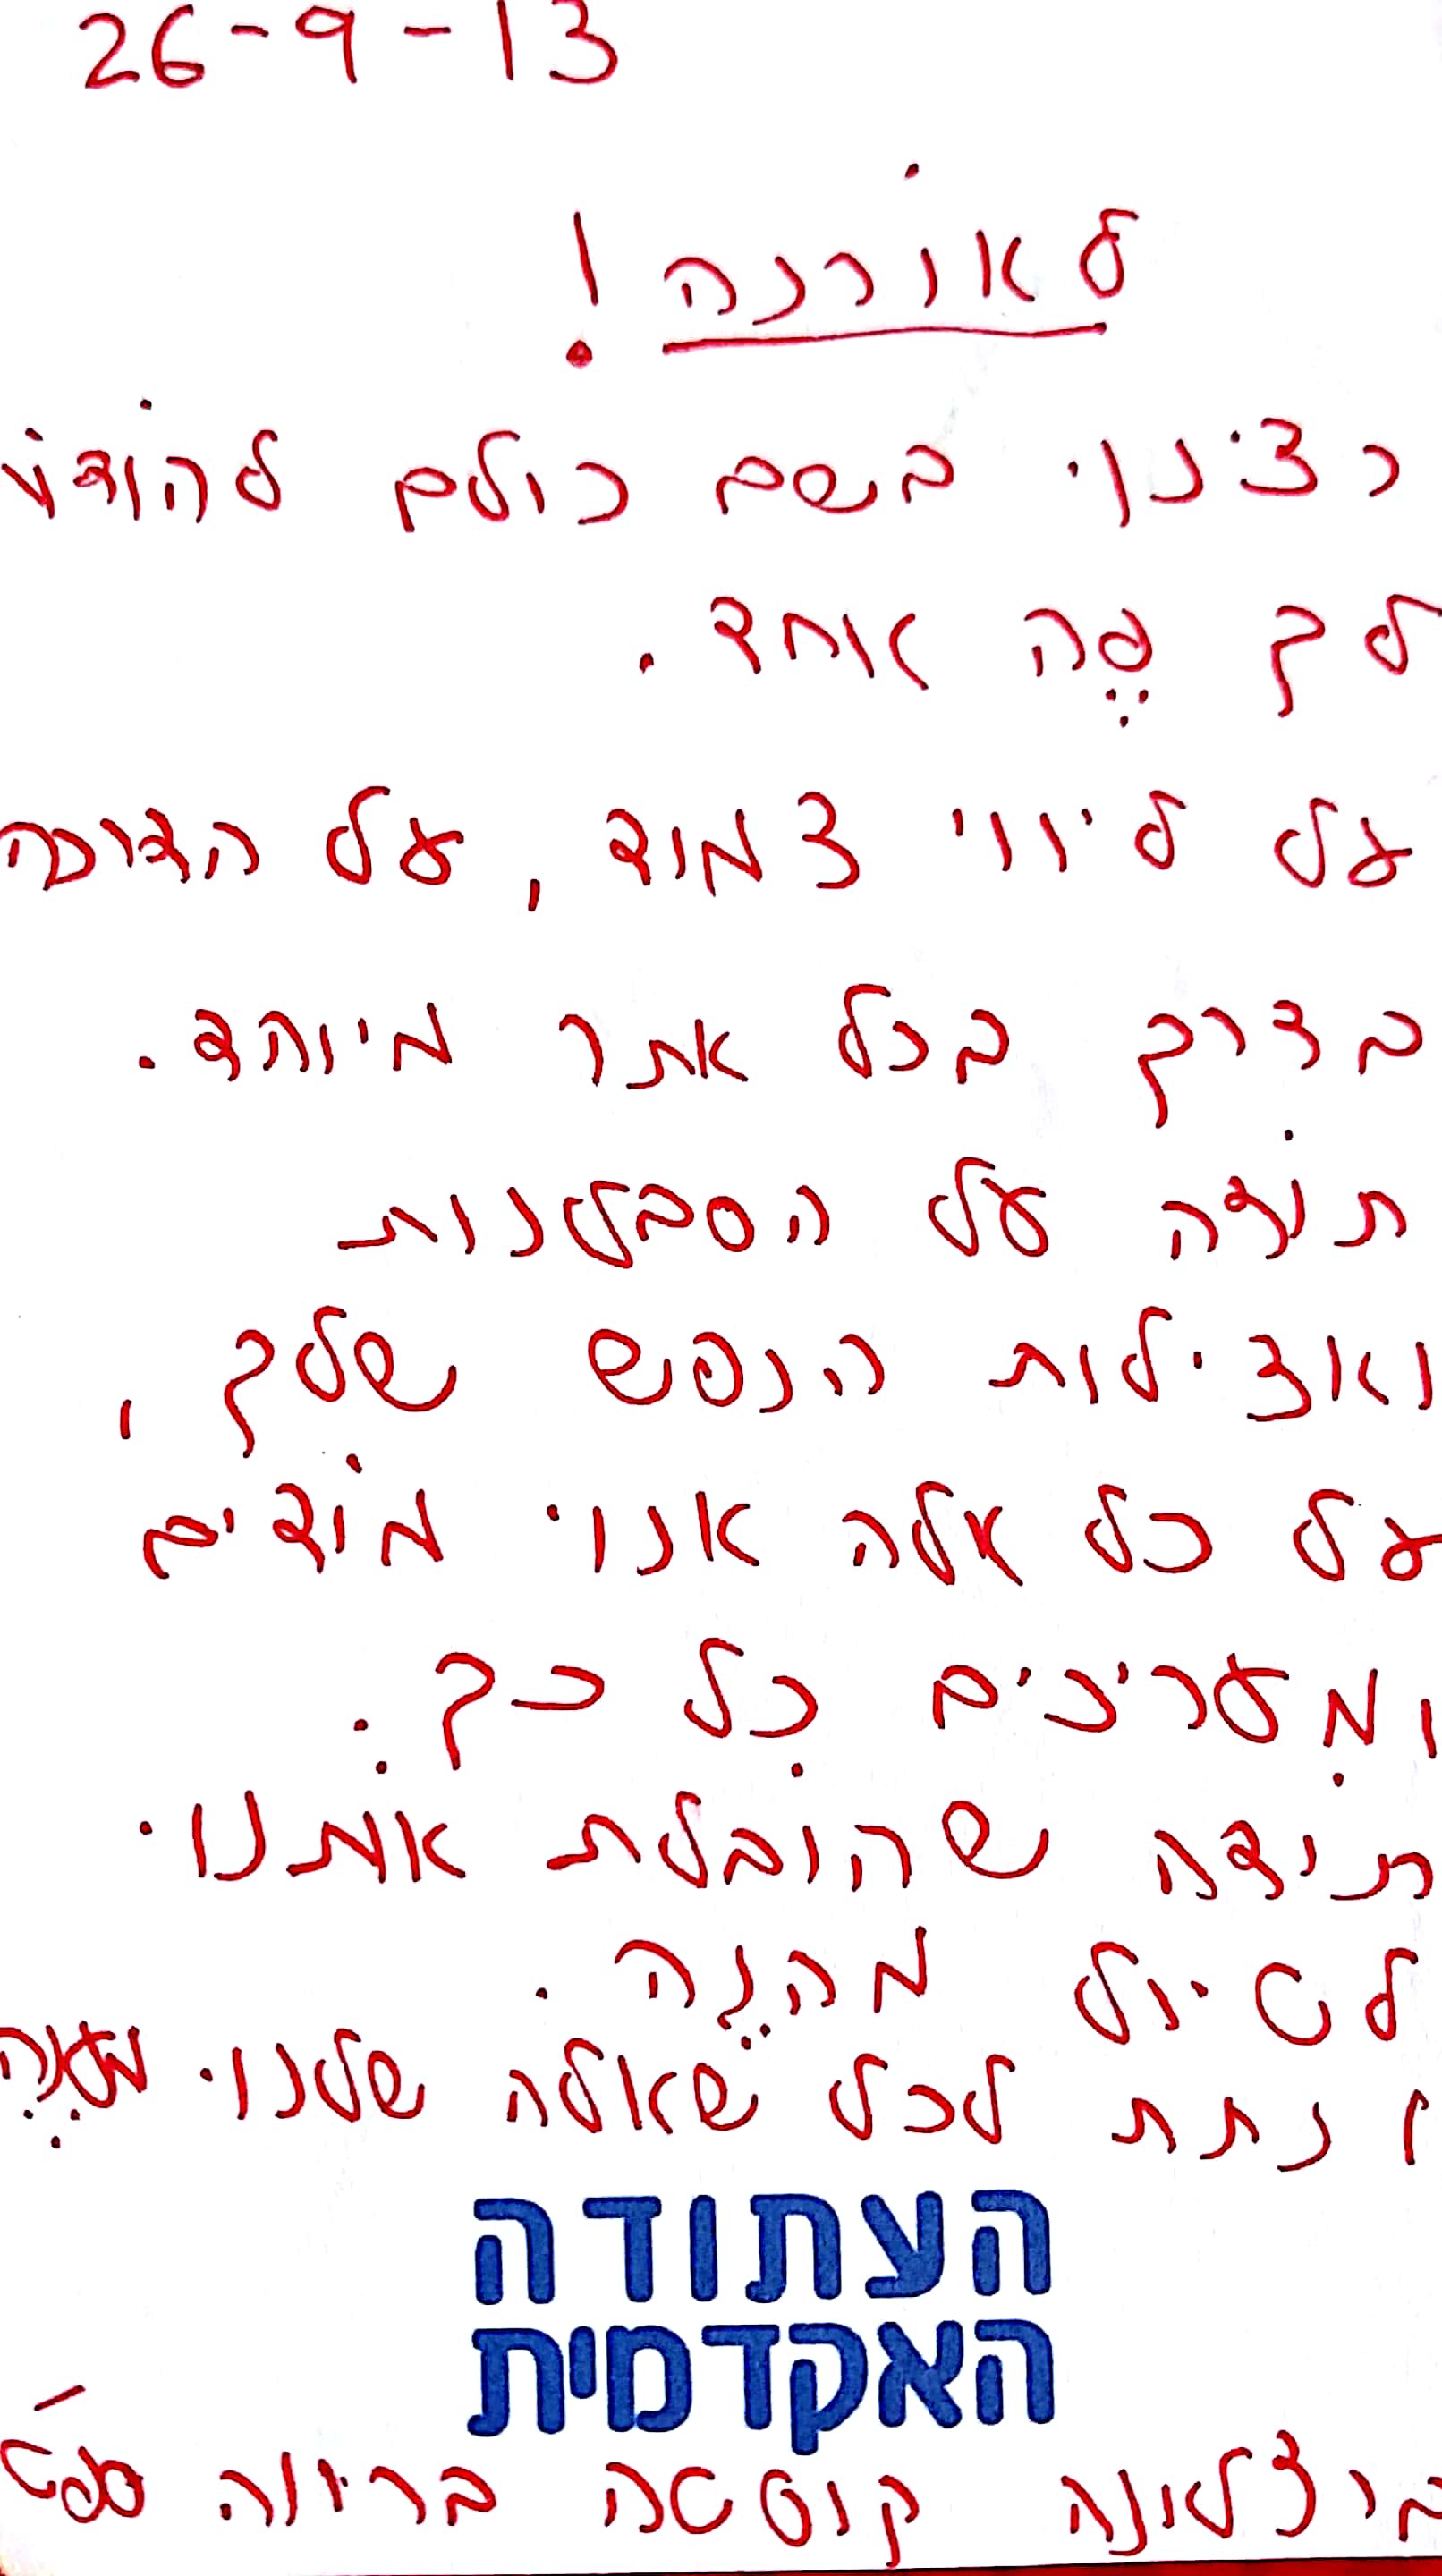 26-9-13
לאורנה!
רצינוי בשם כולם להודות
לך פֶה אחד.
על ליווי צמוד, על הדרכה
בדרך בכל אתר מיוחד.
תודה על הסבלנות
ואצילות הנפש שלך,
על כל אלה אנוי מודים
ומעריכים כל כך.
תודה שהובלת אותנוי
לטיול מהנֶה.
ונתת לכל שאלה שלנוי מענֶה
העתודה
האקדמית
ברצלונה קוסטה ברווה